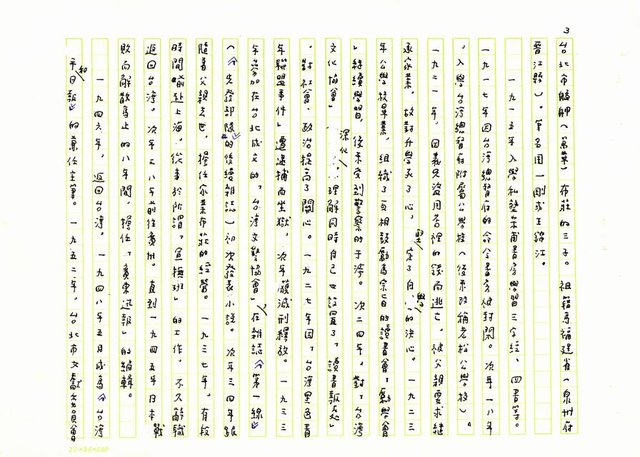 3
台北市艋舺(萬華)布莊的三子。祖籍為福建省(泉州府
晉江縣)。筆名用一剛或王錦江。
一九一五年入學私塾茉莆書房學習三字經、四書等。
一九一七年因台灣總督府的命令書房被封閉。次年一八年
,入學台灣總督府附屬公學校(後來改稱老松公學校)。
一九二一年,因義兄盜用店裡的錢而逃亡,被父親要求繼
承家業,故對升學死了心,堅定了自學的決心。一九二三
年公學校畢業,組織了互相鼓勵為宗旨的讀書會,勸學會
」繼續學習,後來受到警察的干涉。次二四年,對「台灣
文化協會」深化理解同時自己也設置了「讀書報處」
,對社會、政治提高了關心。一九二七年因「台灣黑色青
年聯盟事件」遭逮捕而坐獄,次年蒙減刑釋放。一九三三
年參加在台北成立的,台灣文藝協會」,在雜誌《第一線》
(《先發部隊》的後續雜誌)初次發表小說。次年三四年
隨着父親亡世,擔任家業布莊的經營。一九三七年,有
時間前赴上海,從事於所謂「宣撫班」的工作,不久辭職
返回台灣。次年三八年前往廣州。直到一九四五年日本戰
敗而解散為止的八年間,擔任「廣東迅報」的編輯。
一九四六年,返回台灣,一九四八年五月成為《台灣
和平日報》的兼任主筆。一九五二年,台北市文獻委員會
20×25=500